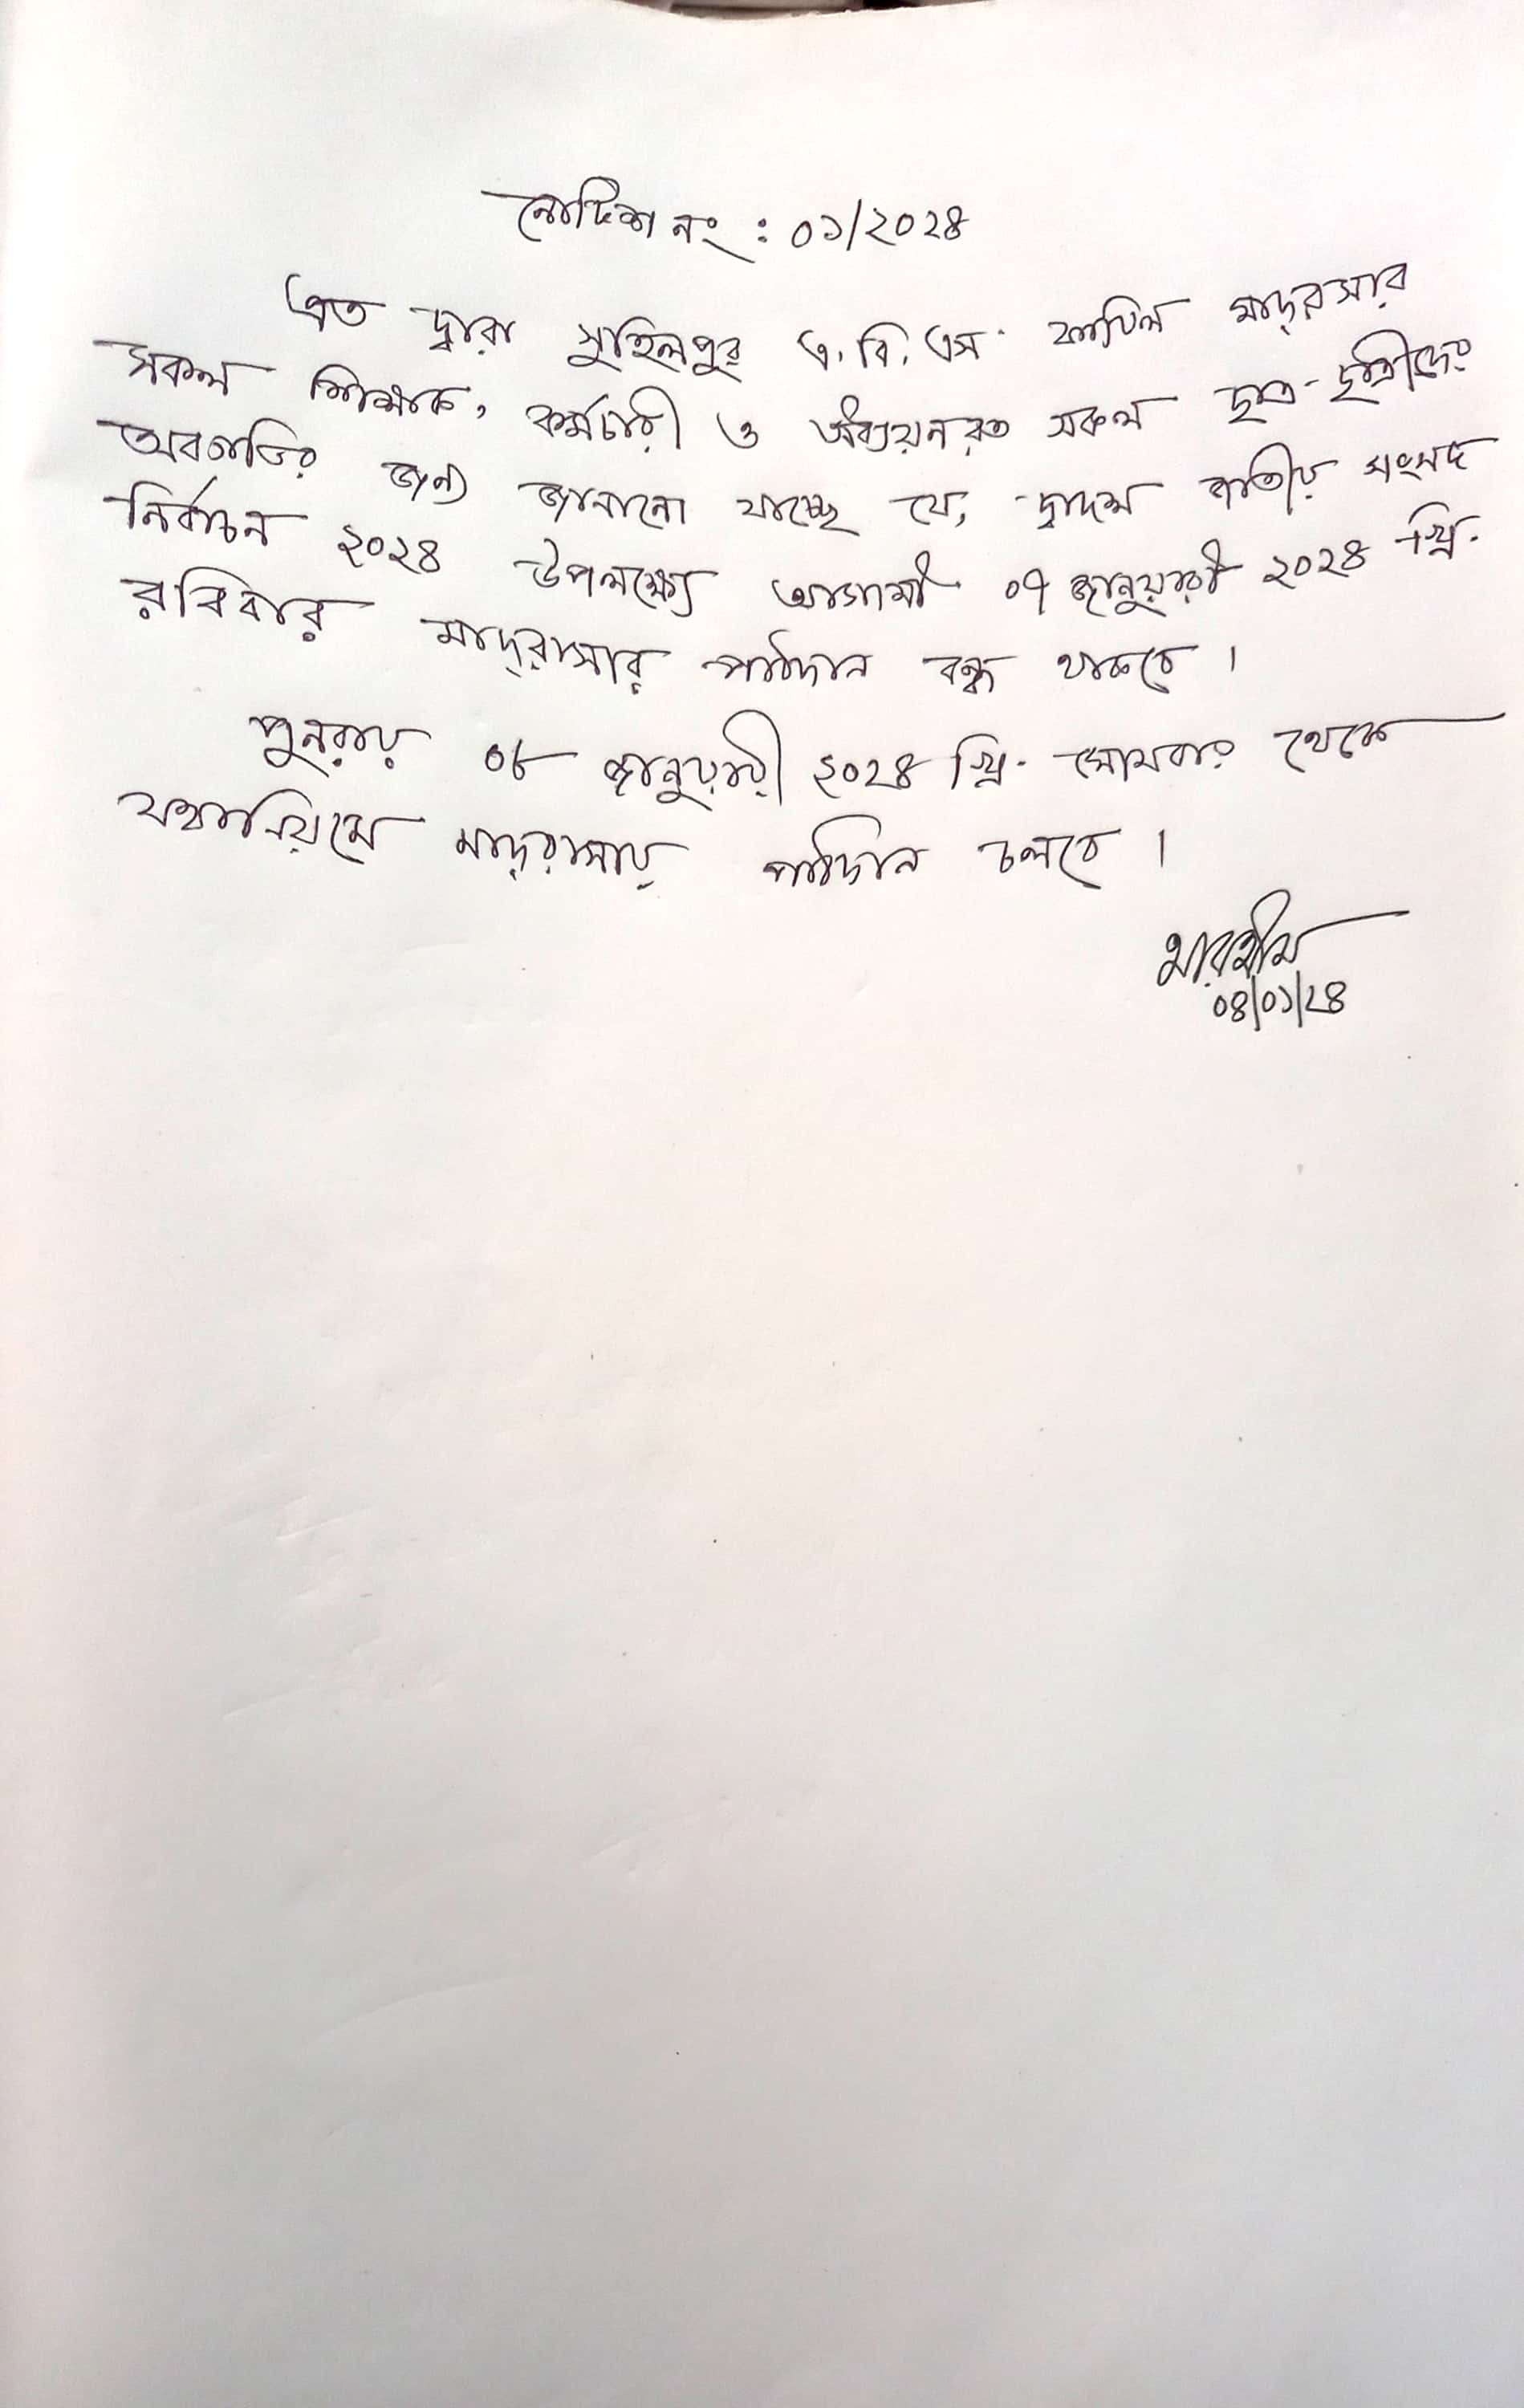 নোটিশ নং : ০১/২০২৪
এত দ্বারা সুহিলপুর এ. বি. এস. ফাযিল মাদ্‌রাসার
সকল শিক্ষক, কর্মচারী ও অধ্যয়নরত সকল ছাত্র-ছাত্রীদের
অবগতির জন্য জানানো যাচ্ছে যে, দ্বাদশ জাতীয় সংসদ
নির্বাচন ২০২৪ উপলক্ষ্যে আগামী ০৭ জানুয়ারী ২০২৪ খ্রি.
রবিবার মাদ্‌রাসার পাঠদান বন্ধ থাকবে।
পুনরায় ০৮ জানুয়ারী ২০২৪ খ্রি. সোমবার থেকে
যথানিয়মে মাদ্‌রাসায় পাঠদান চলবে।
০৪/০১/২৪